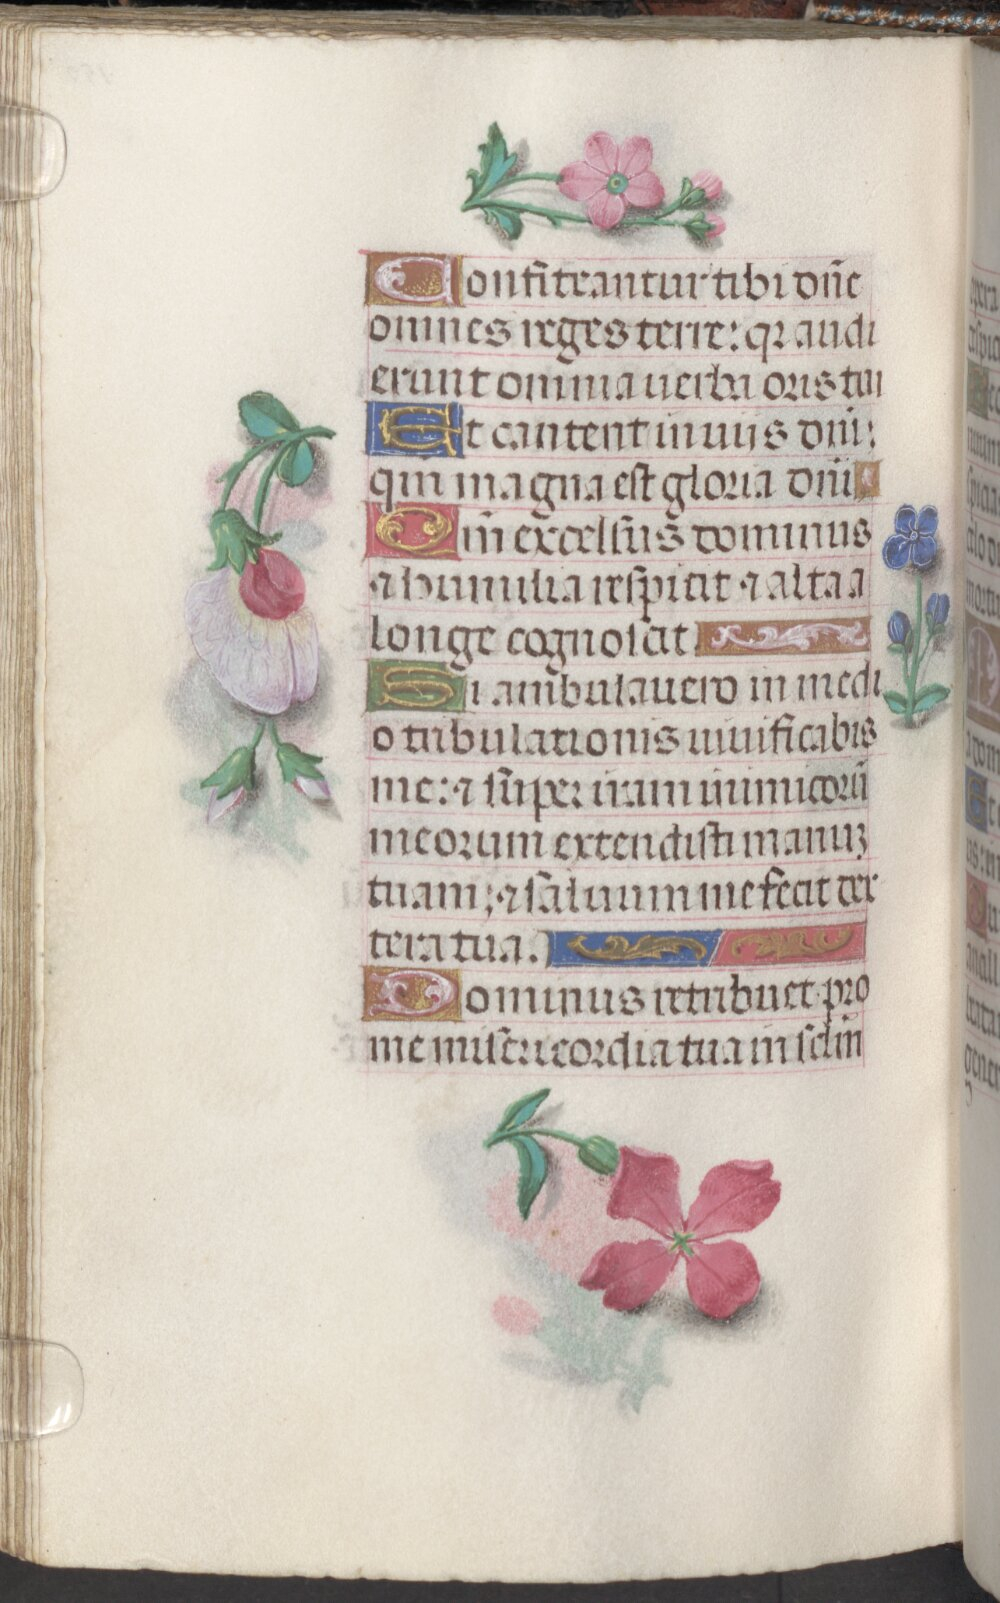 Confiteantur tibi dñe
omnes reges terre: qꝛ audi
erunt omnia uerba oris tui
Et cantent in uiis dñi:
qm̃ magna est gloria dñi
Qm̃ excelsus dominus
⁊ humilia respicit ⁊ alta a
longe cognoscit
Si ambulauero in medi
o tribulationis uiuificabis
me: ⁊ super iram inimicorũ
meorum extendisti manuꝫ
tuam; ⁊ saluum me fecit dex
tera tua.
Dominus retribuet pro
me misericordia tua in sclm̃